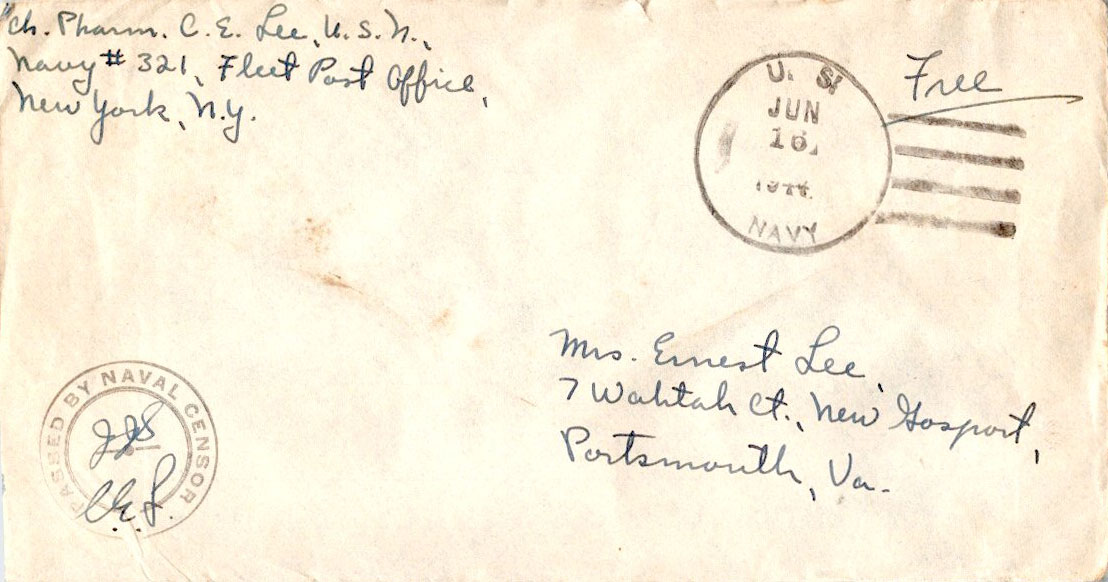 Ch. Pharm. C. E. Lee, U. S. N.,
Navy # 321, Fleet Post Office,
New York, N.Y.
Free
U. S.
JUN
16
1944
NAVY
Mrs. Ernest Lee,
7 Wahtah Ct., New Gosport,
Portsmouth, Va.
PASSED BY NAVAL CENSOR
C.E.L.